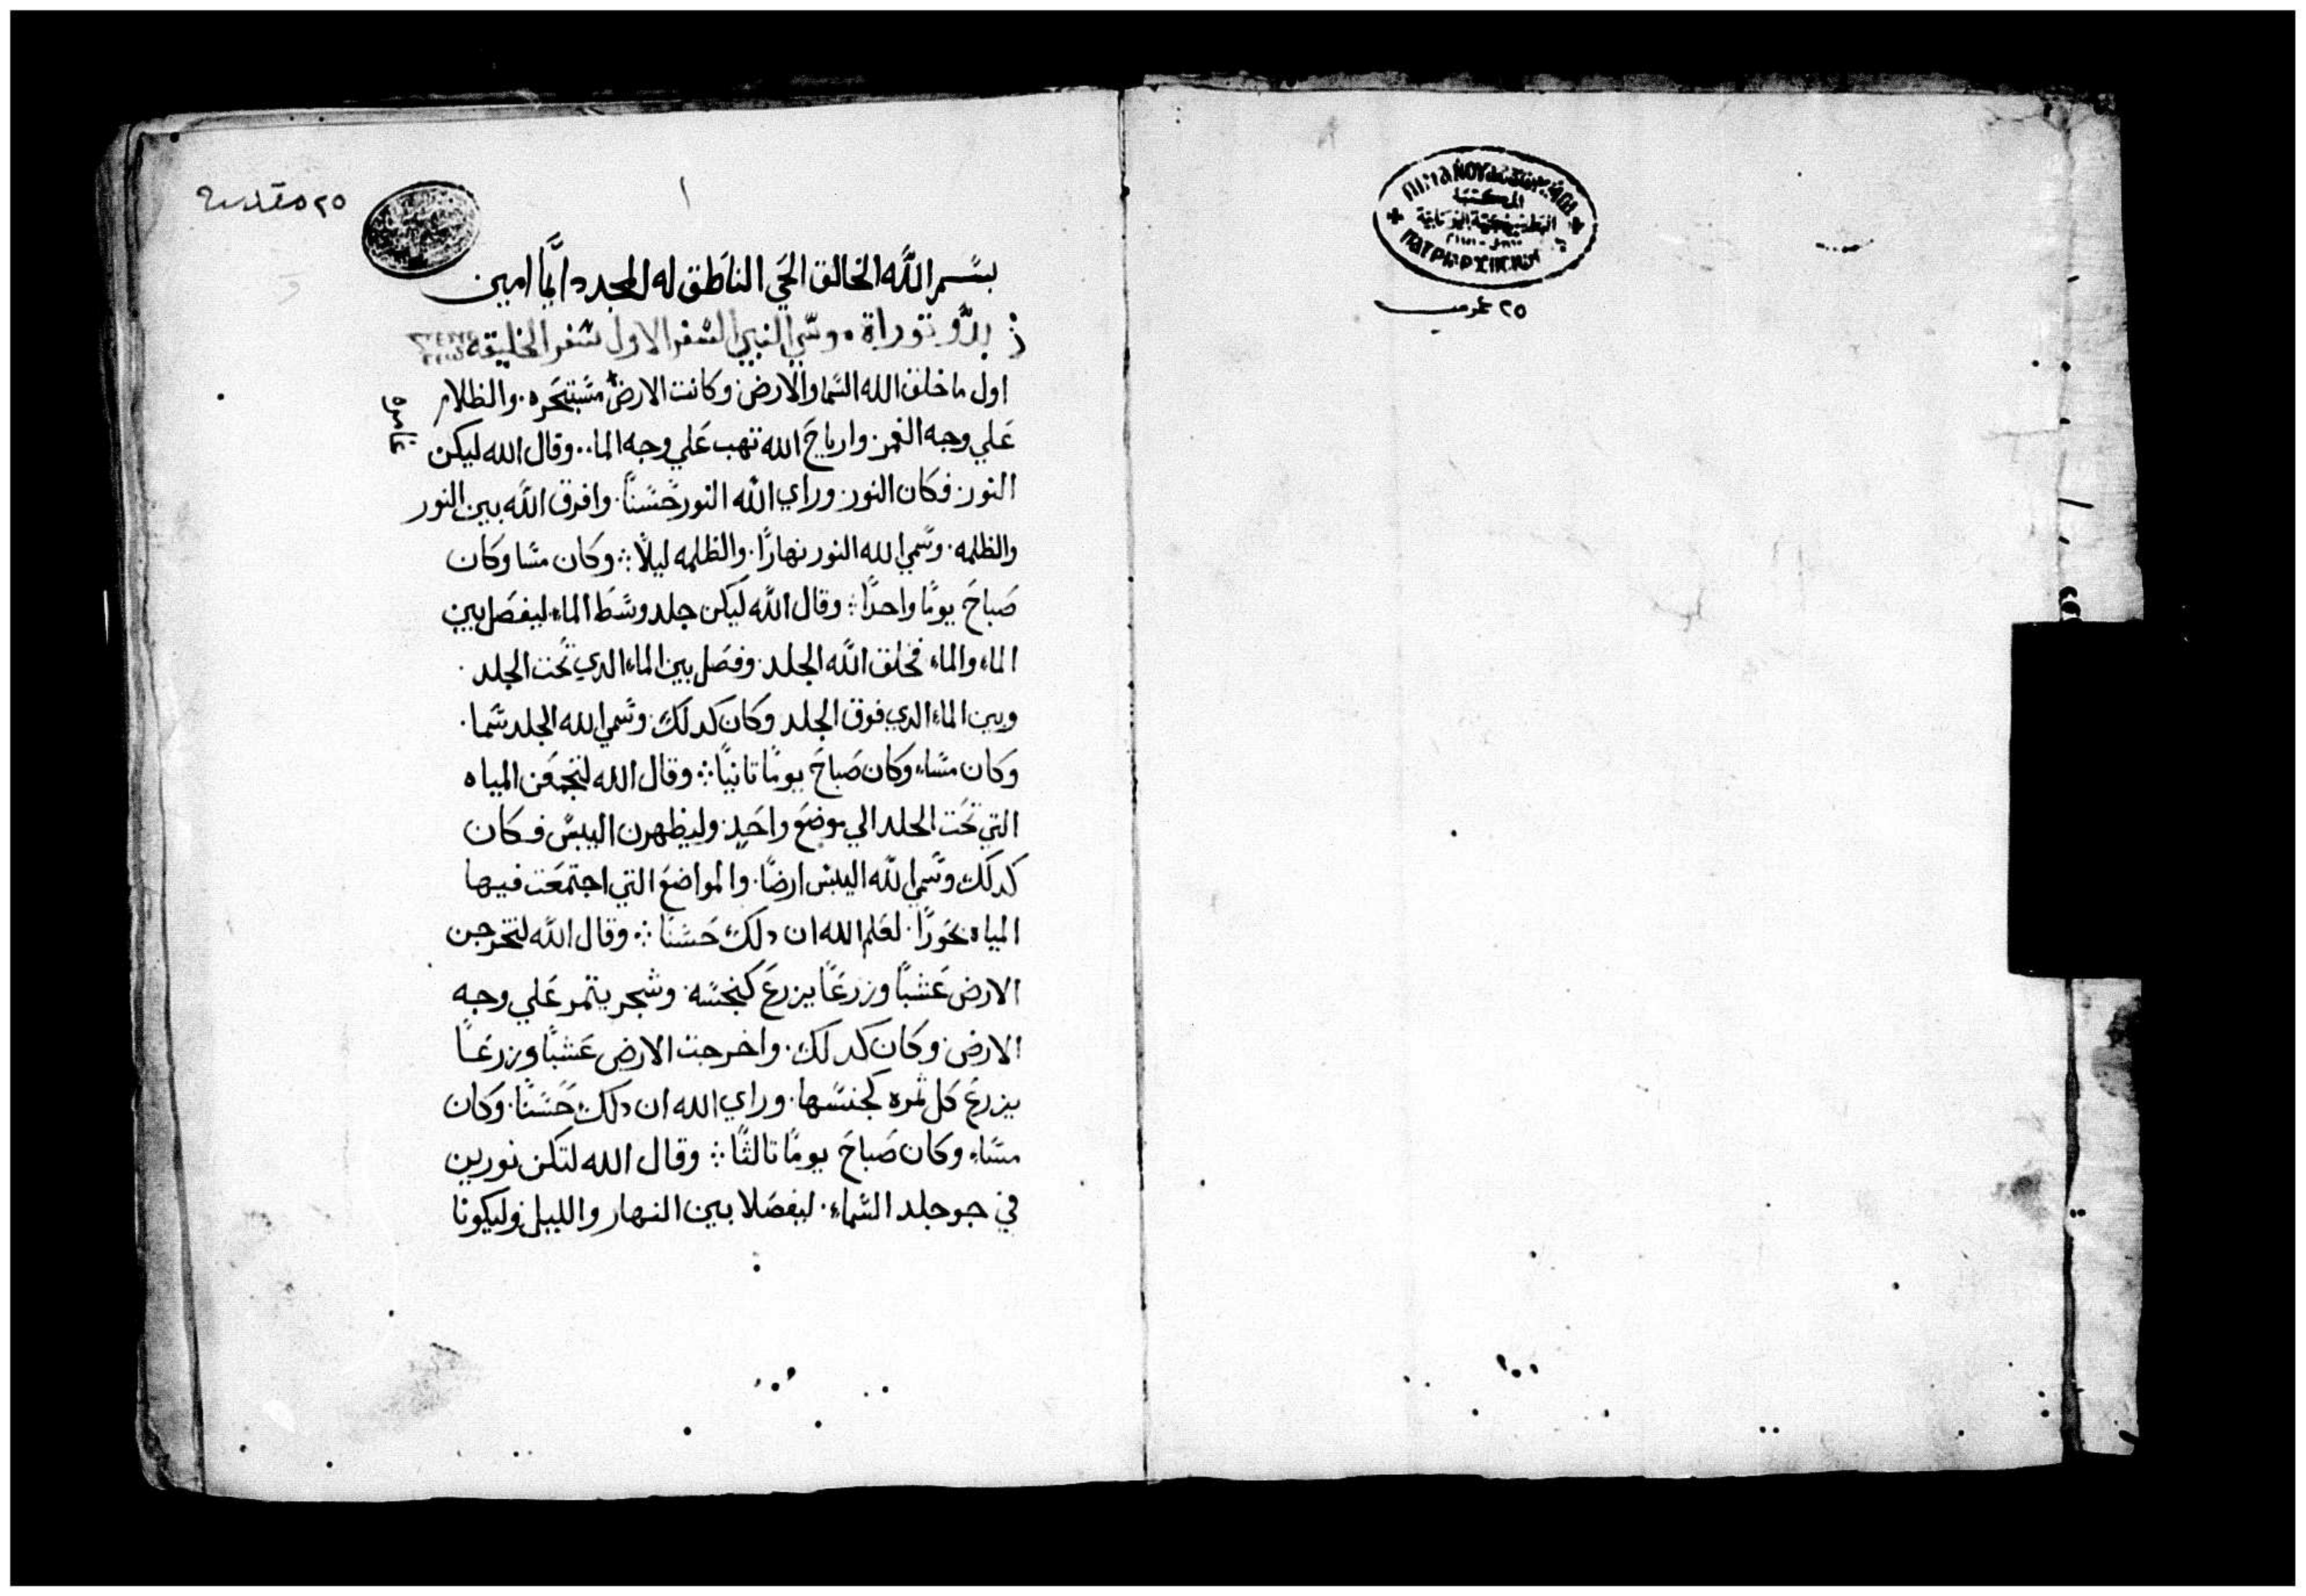 المكتبة
٢٥ عربي
٢٥ مقدسة
١
بسم الله الخالق الحي الناطق له المجد دايما امين
بدو توراة وسي النبي السفر الاول سفر الخليقه
اول ما خلق الله السما والارض وكانت الارض مستبحره. والظلام
غامره
علي وجه الغمر وارياح الله تهب علي وجه الما.. وقال الله ليكن
النور. فكان النور. وراي الله النور حسنًا. وافرق الله بين النور
والظلمه. وسمي الله النور نهارًا. والظلمه ليلًا ؞ وكان مسا وكان
صباح يومًا واحدًا ؞ وقال الله ليكن جلد وسط الماء ليفصل بين
الماء والماء فخلق الله الجلد. وفصل بين الماء الدي تحت الجلد.
وبين الماء الدي فوق الجلد وكان كدلك. وسمي الله الجلد سما.
وكان مساء وكان صباح يومًا تانيًا ؞ وقال الله لتجمعن المياه
التي تحت الجلد الي موضع واحدٍ. وليظهرن اليبس فكان
كدلك وسمي الله اليبس ارضًا. والمواضع التي اجتمعت فيها
المياه بحورًا. لعلم الله ان دلك حسنًا ؞ وقال الله لتخرجن
الارض عشبًا وزرعًا يزرع كجنسه. وشجر يتمر علي وجه
الارض. وكان كدلك. واخرجت الارض عشبًا وزرعًا
يزرع كل ثمره كجنسها. وراي الله ان دلك حسنًا. وكان
مساء وكان صباح يومًا تالثًا ؞ وقال الله لتكن نورين
في جو جلد السماء. ليفصلا بين النهار والليل وليكونا